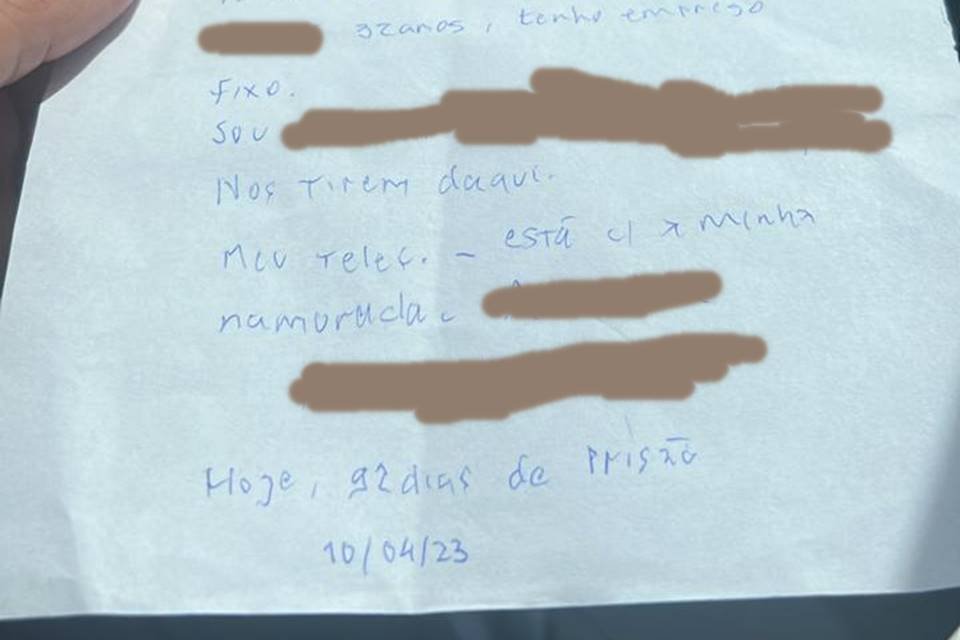 32anos, tenho emprego
fixo.
Sou
Nos tirem daqui.
Meu telef. - está c/ a minha
namorada.
Hoje, 92 dias de prisão
10/04/23